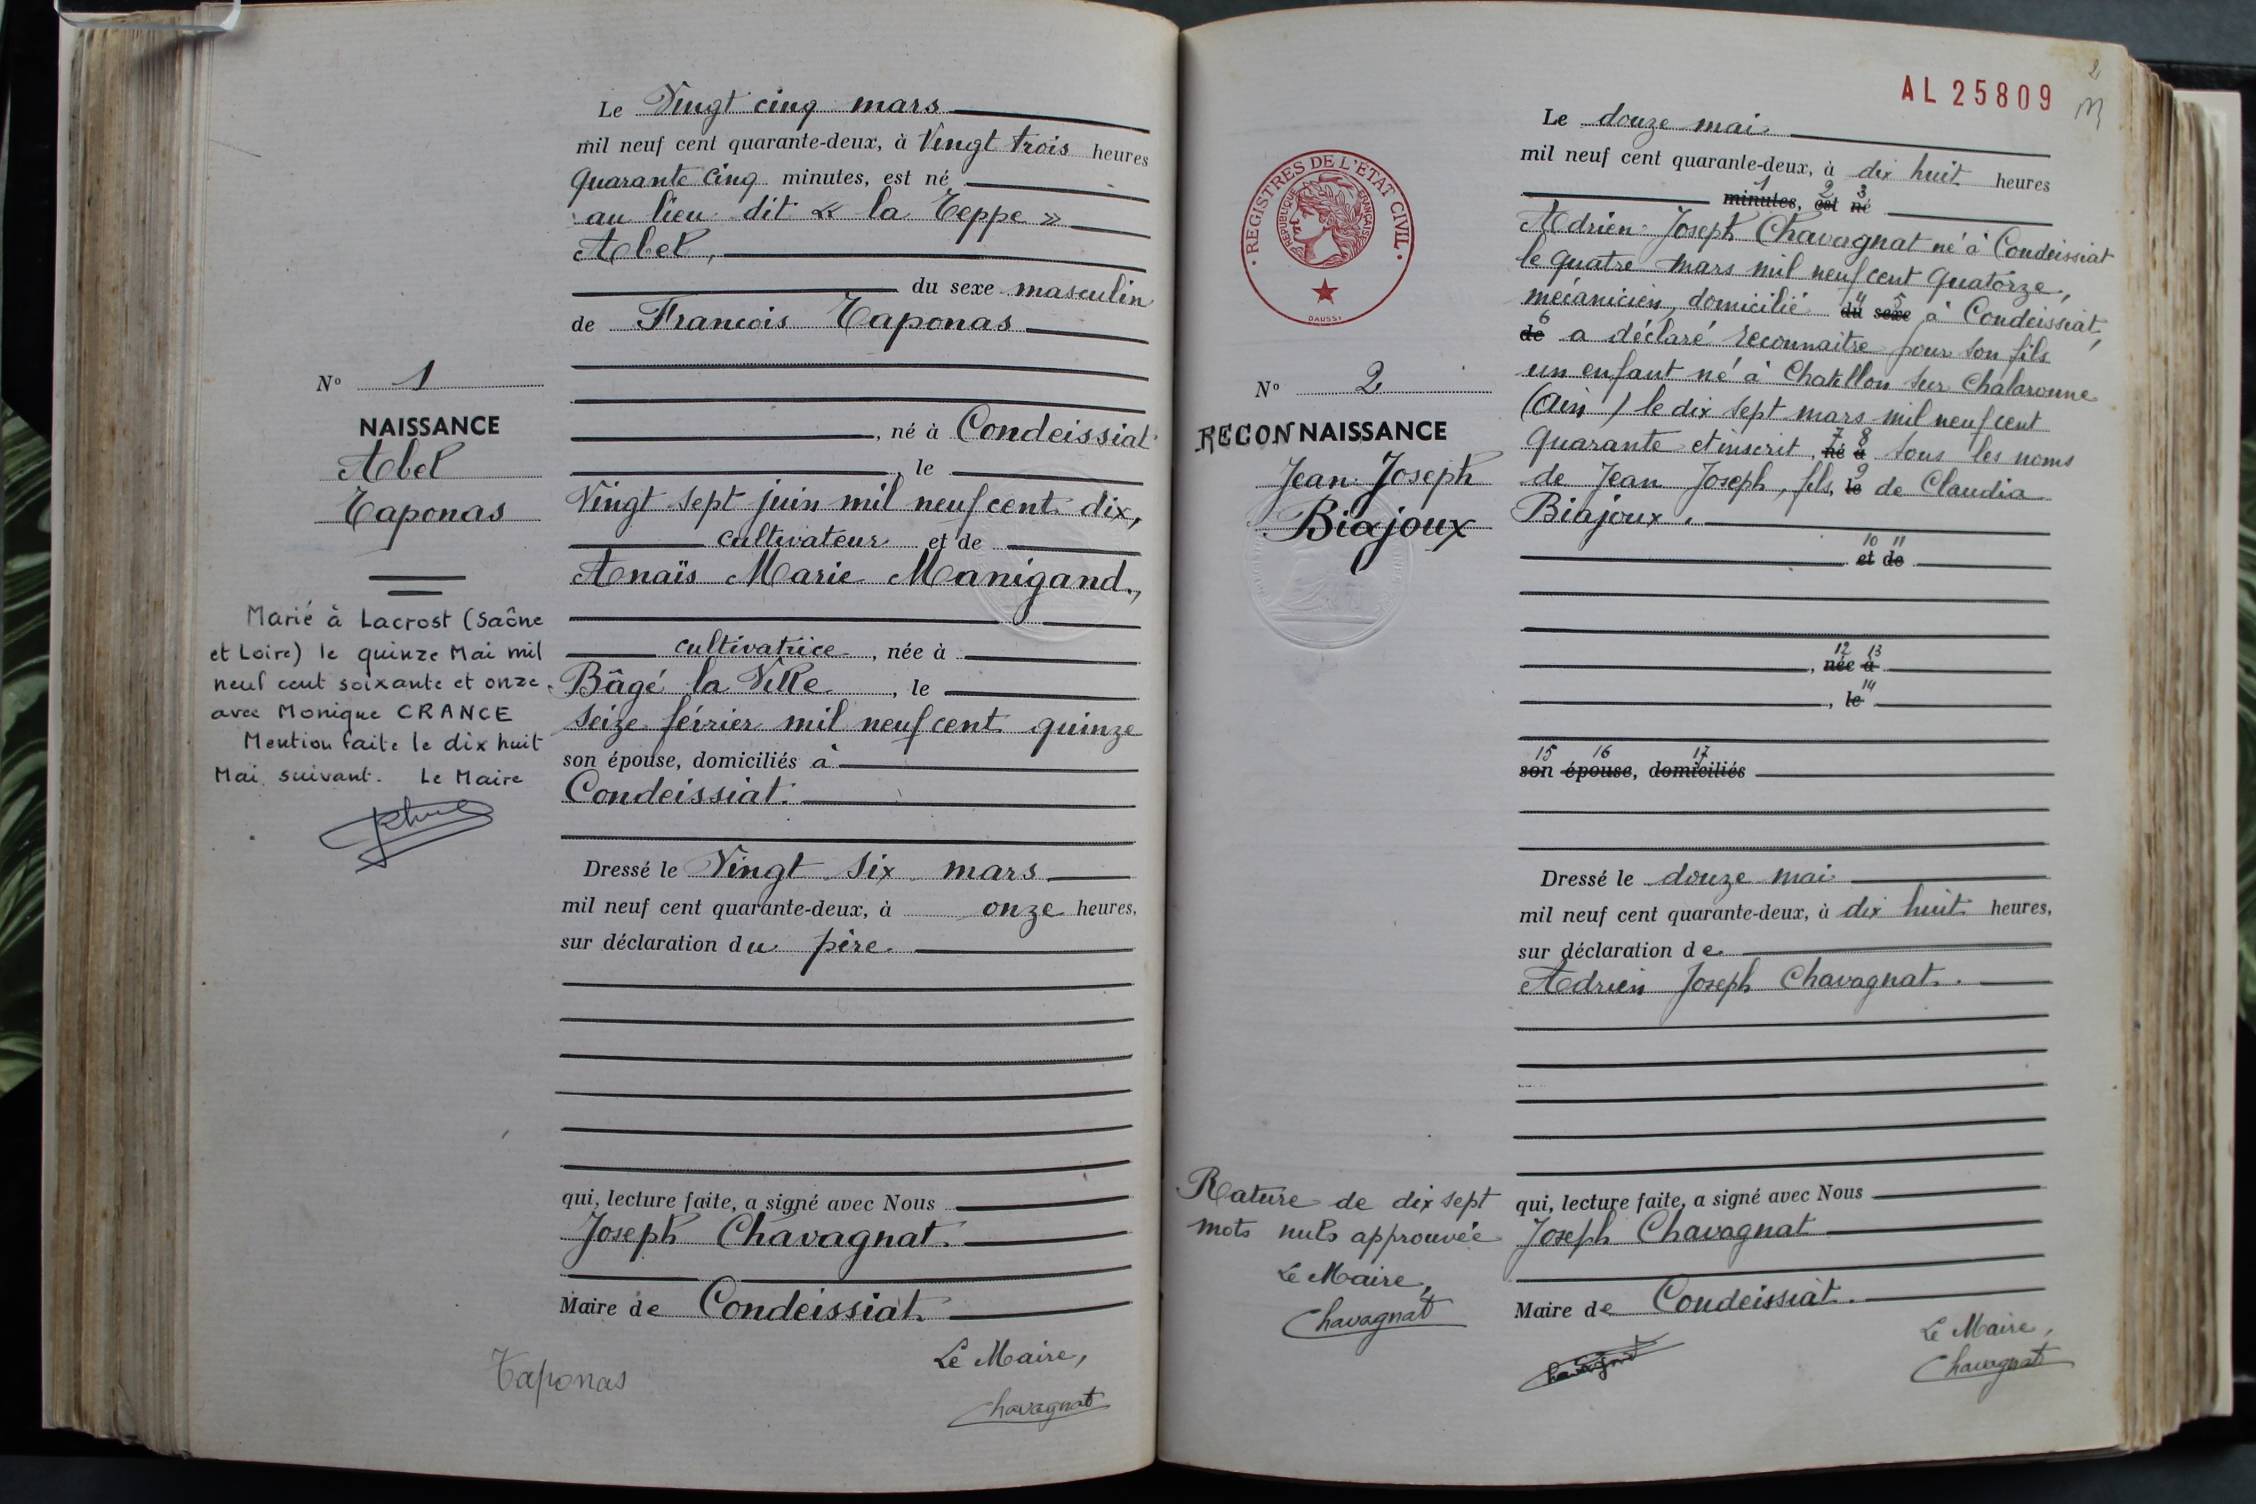 Le Vingt cinq mars
mil neuf cent quarante-deux, à Vingt trois heures
quarante cinq minutes, est né
au lieu dit « la Teppe »
Abel,
du sexe masculin
de François Taponas
N° 1
NAISSANCE
Abel
Taponas
, né à Condeissiat
, le
Vingt sept juin mil neuf cent dix,
cultivateur et de
Anaïs Marie Manigand,
cultivatrice, née à
Bâgé la Ville, le
seize février mil neuf cent quinze
son épouse, domiciliés à
Condeissiat.
Marié à Lacrost (Saône
et Loire) le quinze Mai mil
neuf cent soixante et onze
avec Monique CRANCE
Mention faite le dix huit
Mai suivant. Le Maire
Dressé le Vingt six mars
mil neuf cent quarante-deux, à onze heures,
sur déclaration du père.
qui, lecture faite, a signé avec Nous
Joseph Chavagnat.
Maire de Condeissiat.
Taponas
Le Maire,
Chavagnat
2
AL 25809
REGISTRES DE L'ÉTAT CIVIL
RÉPUBLIQUE FRANÇAISE
DAUSSY
Le douze mai
mil neuf cent quarante-deux, à dix huit heures
1 2 3
minutes, est né
Adrien Joseph Chavagnat né à Condeissiat
le quatre mars mil neuf cent quatorze,
4 5
mécanicien, domicilié du sexe à Condeissiat,
6
de a déclaré reconnaitre pour son fils
un enfant né à Chatillon sur Chalaronne
(Ain) le dix sept mars mil neuf cent
7 8
quarante et inscrit, né à sous les noms
9
de Jean Joseph, fils, le de Claudia
Biajoux.
10 11
et de
12 13
, née à
14
, le
15 16 17
son épouse, domiciliés
N° 2
RECONNAISSANCE
Jean Joseph
Biajoux
Dressé le douze mai
mil neuf cent quarante-deux, à dix huit heures,
sur déclaration de
Adrien Joseph Chavagnat.
qui, lecture faite, a signé avec Nous
Joseph Chavagnat
Maire de Condeissiat.
Rature de dix sept
mots nuls approuvée
Le Maire,
Chavagnat
Chavagnat
Le Maire,
Chavagnat